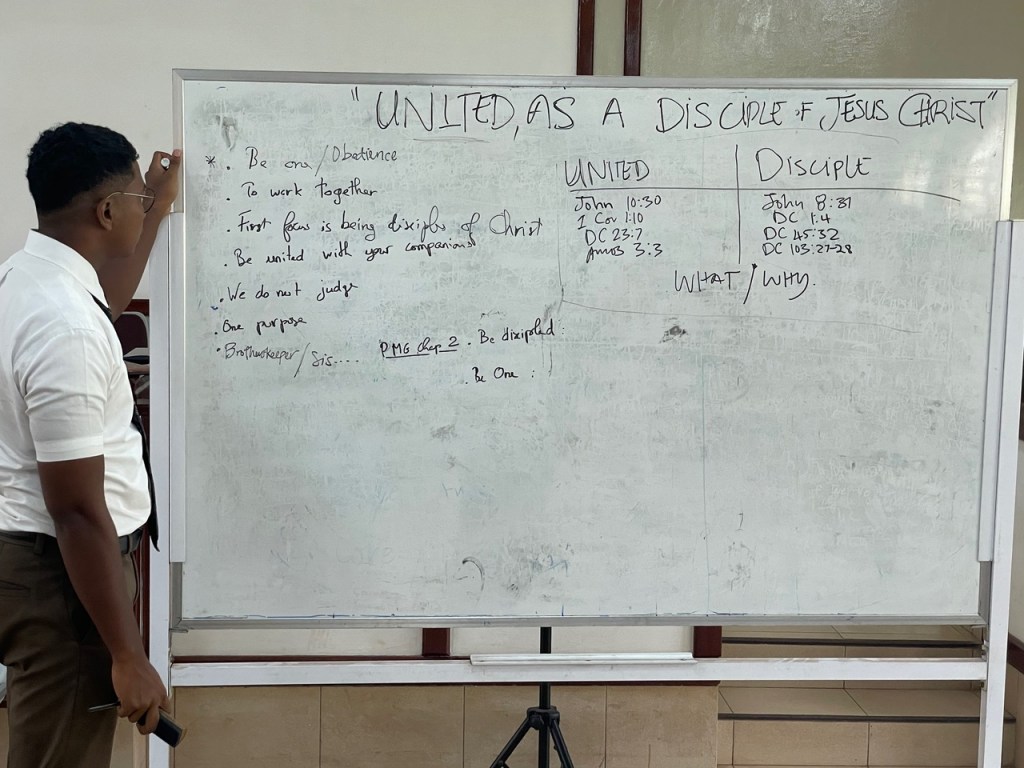 "UNITED, AS A DISCIPLE OF JESUS CHRIST"
* . Be one/Obetience
. To work together
. First focus is being disciples of Christ
. Be united with your companions
. We do not judge
. One purpose
. Brotherkeeper/Sis....
PMG Chap 2 . Be discipled :
. Be One :
UNITED
John 10:30
1 Cor 1:10
DC 23:7
Amos 3:3
DISCIPLE
John 8:31
DC 1:4
DC 45:32
DC 103:27-28
WHAT/WHY.